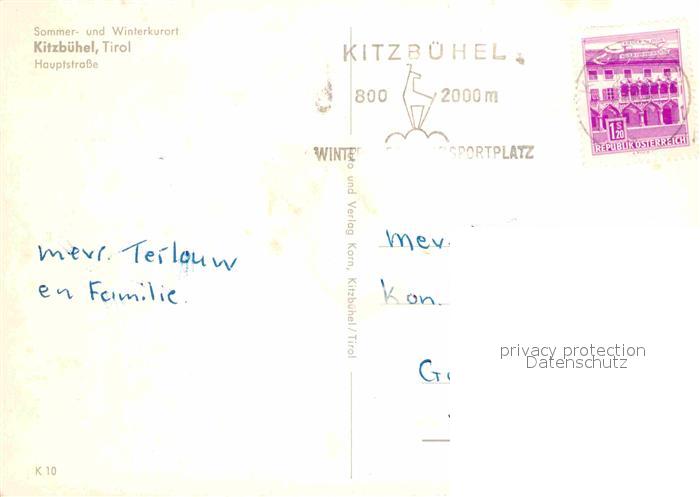 Sommer- und Winterkurort
Kitzbühel, Tirol
Hauptstraße
KITZBÜHEL
800 2000 m
WINTER SPORTPLATZ
1 S 70
REPUBLIK ÖSTERREICH
mevr. Terlouw
en Familie.
und Verlag Korn, Kitzbühel/Tirol
Mev.
Kon.
privacy protection
Datenschutz
K 10